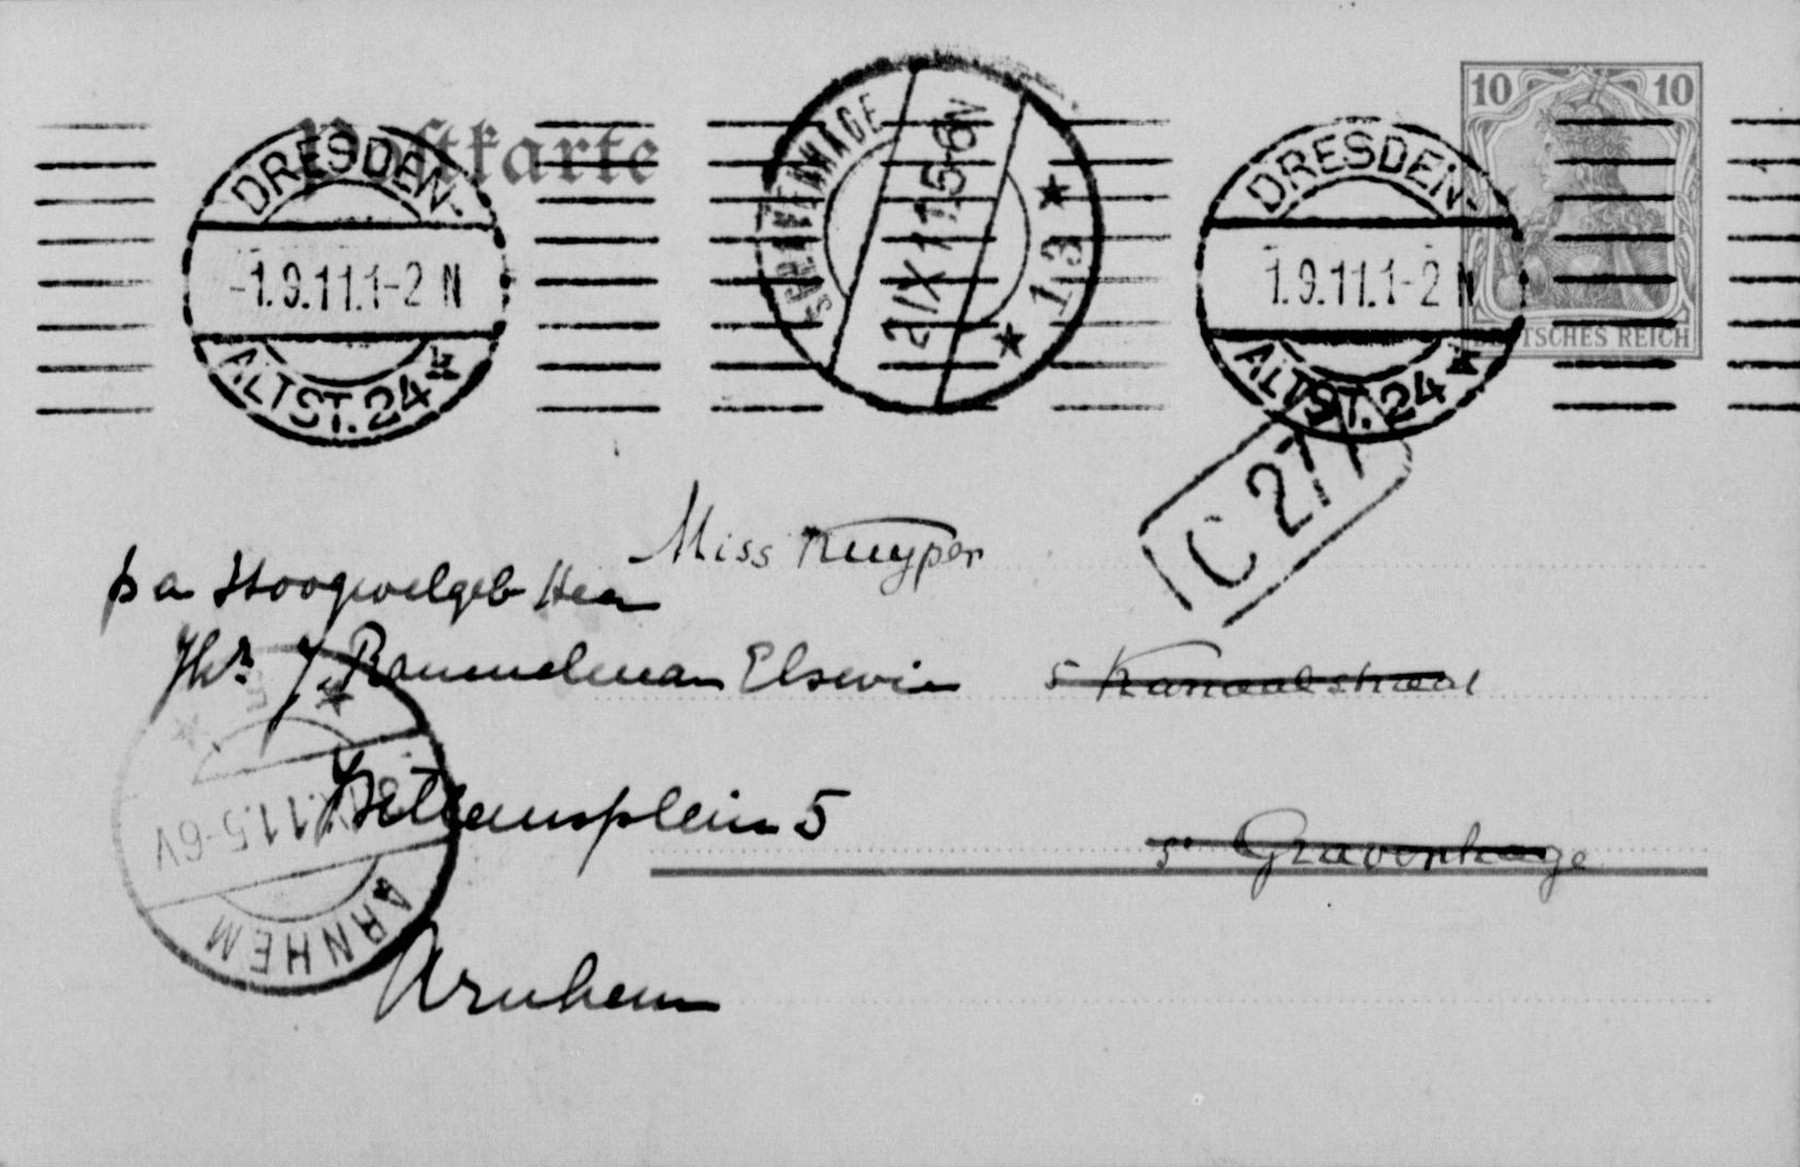 Postkarte
10 10
DEUTSCHES REICH
DRESDEN-
-1.9.11.1-2 N
ALTST. 24
'S GRAVENHAGE
2/IX 11 5-6V
★ 13 ★
DRESDEN-
1.9.11.1-2 N
ALTST. 24
C 277
Miss Kuyper
p a Hoogwelgeb Heer
Jhr. J. Rammelman Elsevier
5 Kanaalstraat
plein 5
s' Gravenhage
Arnhem
11.5-6V
ARNHEM